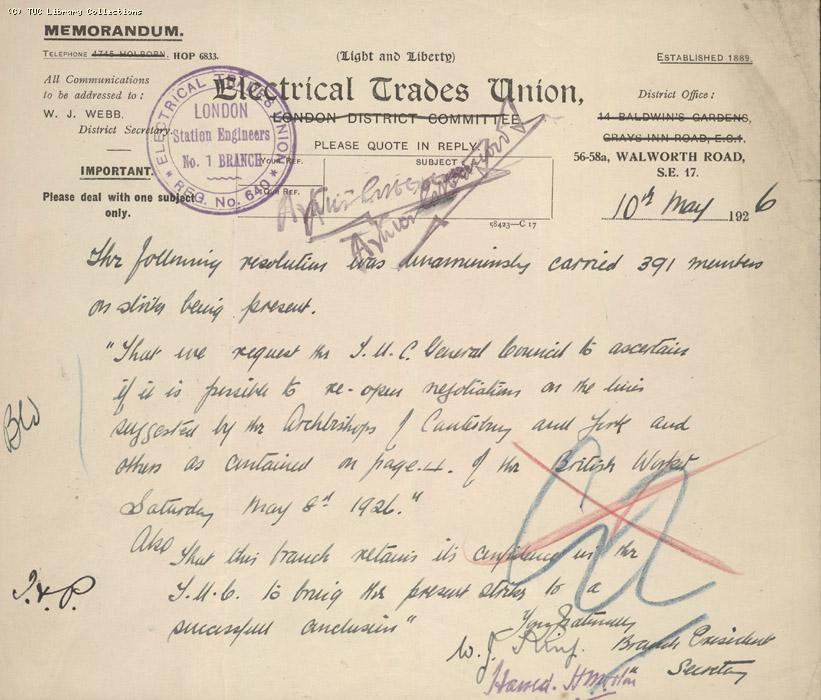 (C) TUC Library Collections
MEMORANDUM.
TELEPHONE 4745 HOLBORN. HOP 6833.
(Light and Liberty)
ESTABLISHED 1889.
All Communications
to be addressed to :
W. J. WEBB,
District Secretary.
Electrical Trades Union,
LONDON DISTRICT COMMITTEE
PLEASE QUOTE IN REPLY
District Office :
14 BALDWIN'S GARDENS,
GRAYS INN ROAD, E.C.1.
56-58a, WALWORTH ROAD,
S.E. 17.
ELECTRICAL TRADES UNION
LONDON
Station Engineers
No. 1 BRANCH
REG. No. 640
IMPORTANT.
Please deal with one subject
only.
YOUR REF.
SUBJECT
OUR REF.
58423—C 17
10th May 1926
The following resolution was unanimously carried 391 members
on strike being present.
"That we request the T.U.C. General Council to ascertain
if it is possible to re-open negotiations on the lines
suggested by the Archbishops of Canterbury and York and
others as contained on page 4. of the British Worker
Saturday May 8th 1926."
Also
That this branch retains its confidence in the
T.U.C. to bring the present strike to a
successfull conclusion"
Yours fraternally
W. J. King. Branch President
Harold. H. Secretary